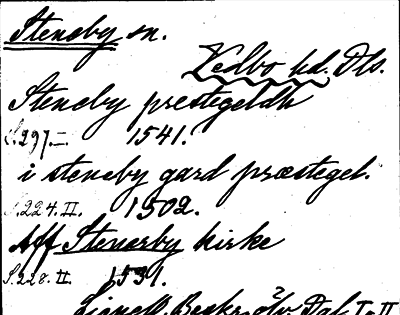 Steneby sn.
Vedbo hd. Dls.
Steneby prestegeldh
S.297.I. 1541.
i steneby gard præstegel.
S.224.II. 1502.
Aff Stenerby kirke
S.228.II. 1591.
Lignell, Beskr. öfv. Dal I o II